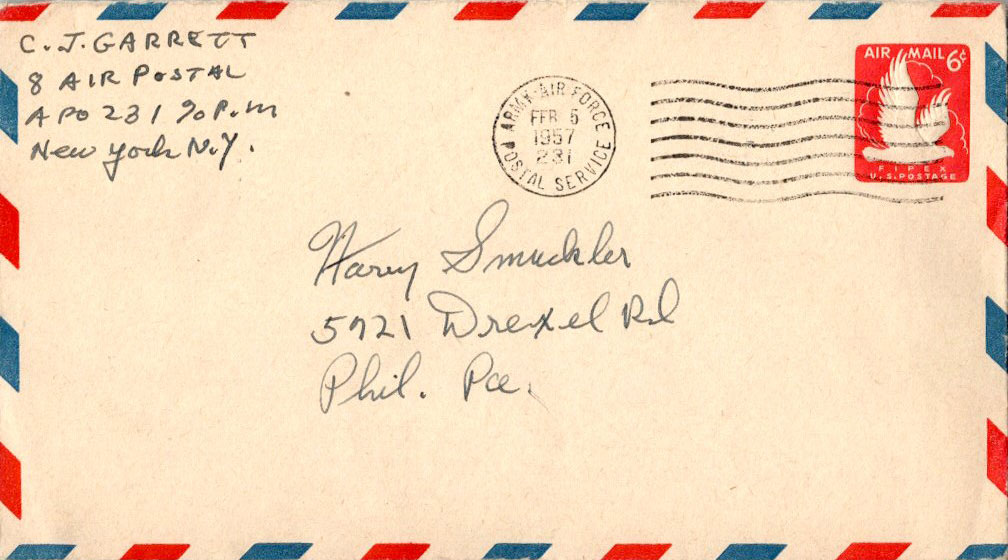 C. J. GARRETT
8 AIR POSTAL
APO 231 % P.M
New York N.Y.
ARMY-AIR FORCE
FEB 5
1957
231
POSTAL SERVICE
AIR MAIL 6¢
FIPEX
U.S. POSTAGE
Harry Smuckler
5921 Drexel Rd
Phil. Pa.